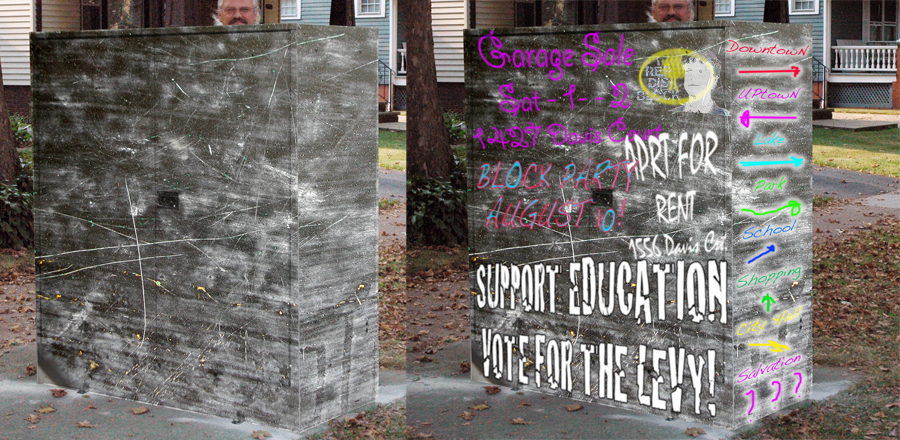 Garage Sale
Sat - 9 - - 2
1427 Davis Court
BLOCK PARTY
AUGUST 10!
APRT FOR
RENT
1556 Davis Crt.
SUPPORT EDUCATION
VOTE FOR THE LEVY!
Downtown
Uptown
Lake
Park
School
Shopping
City Hall
Salvation
? ? ?